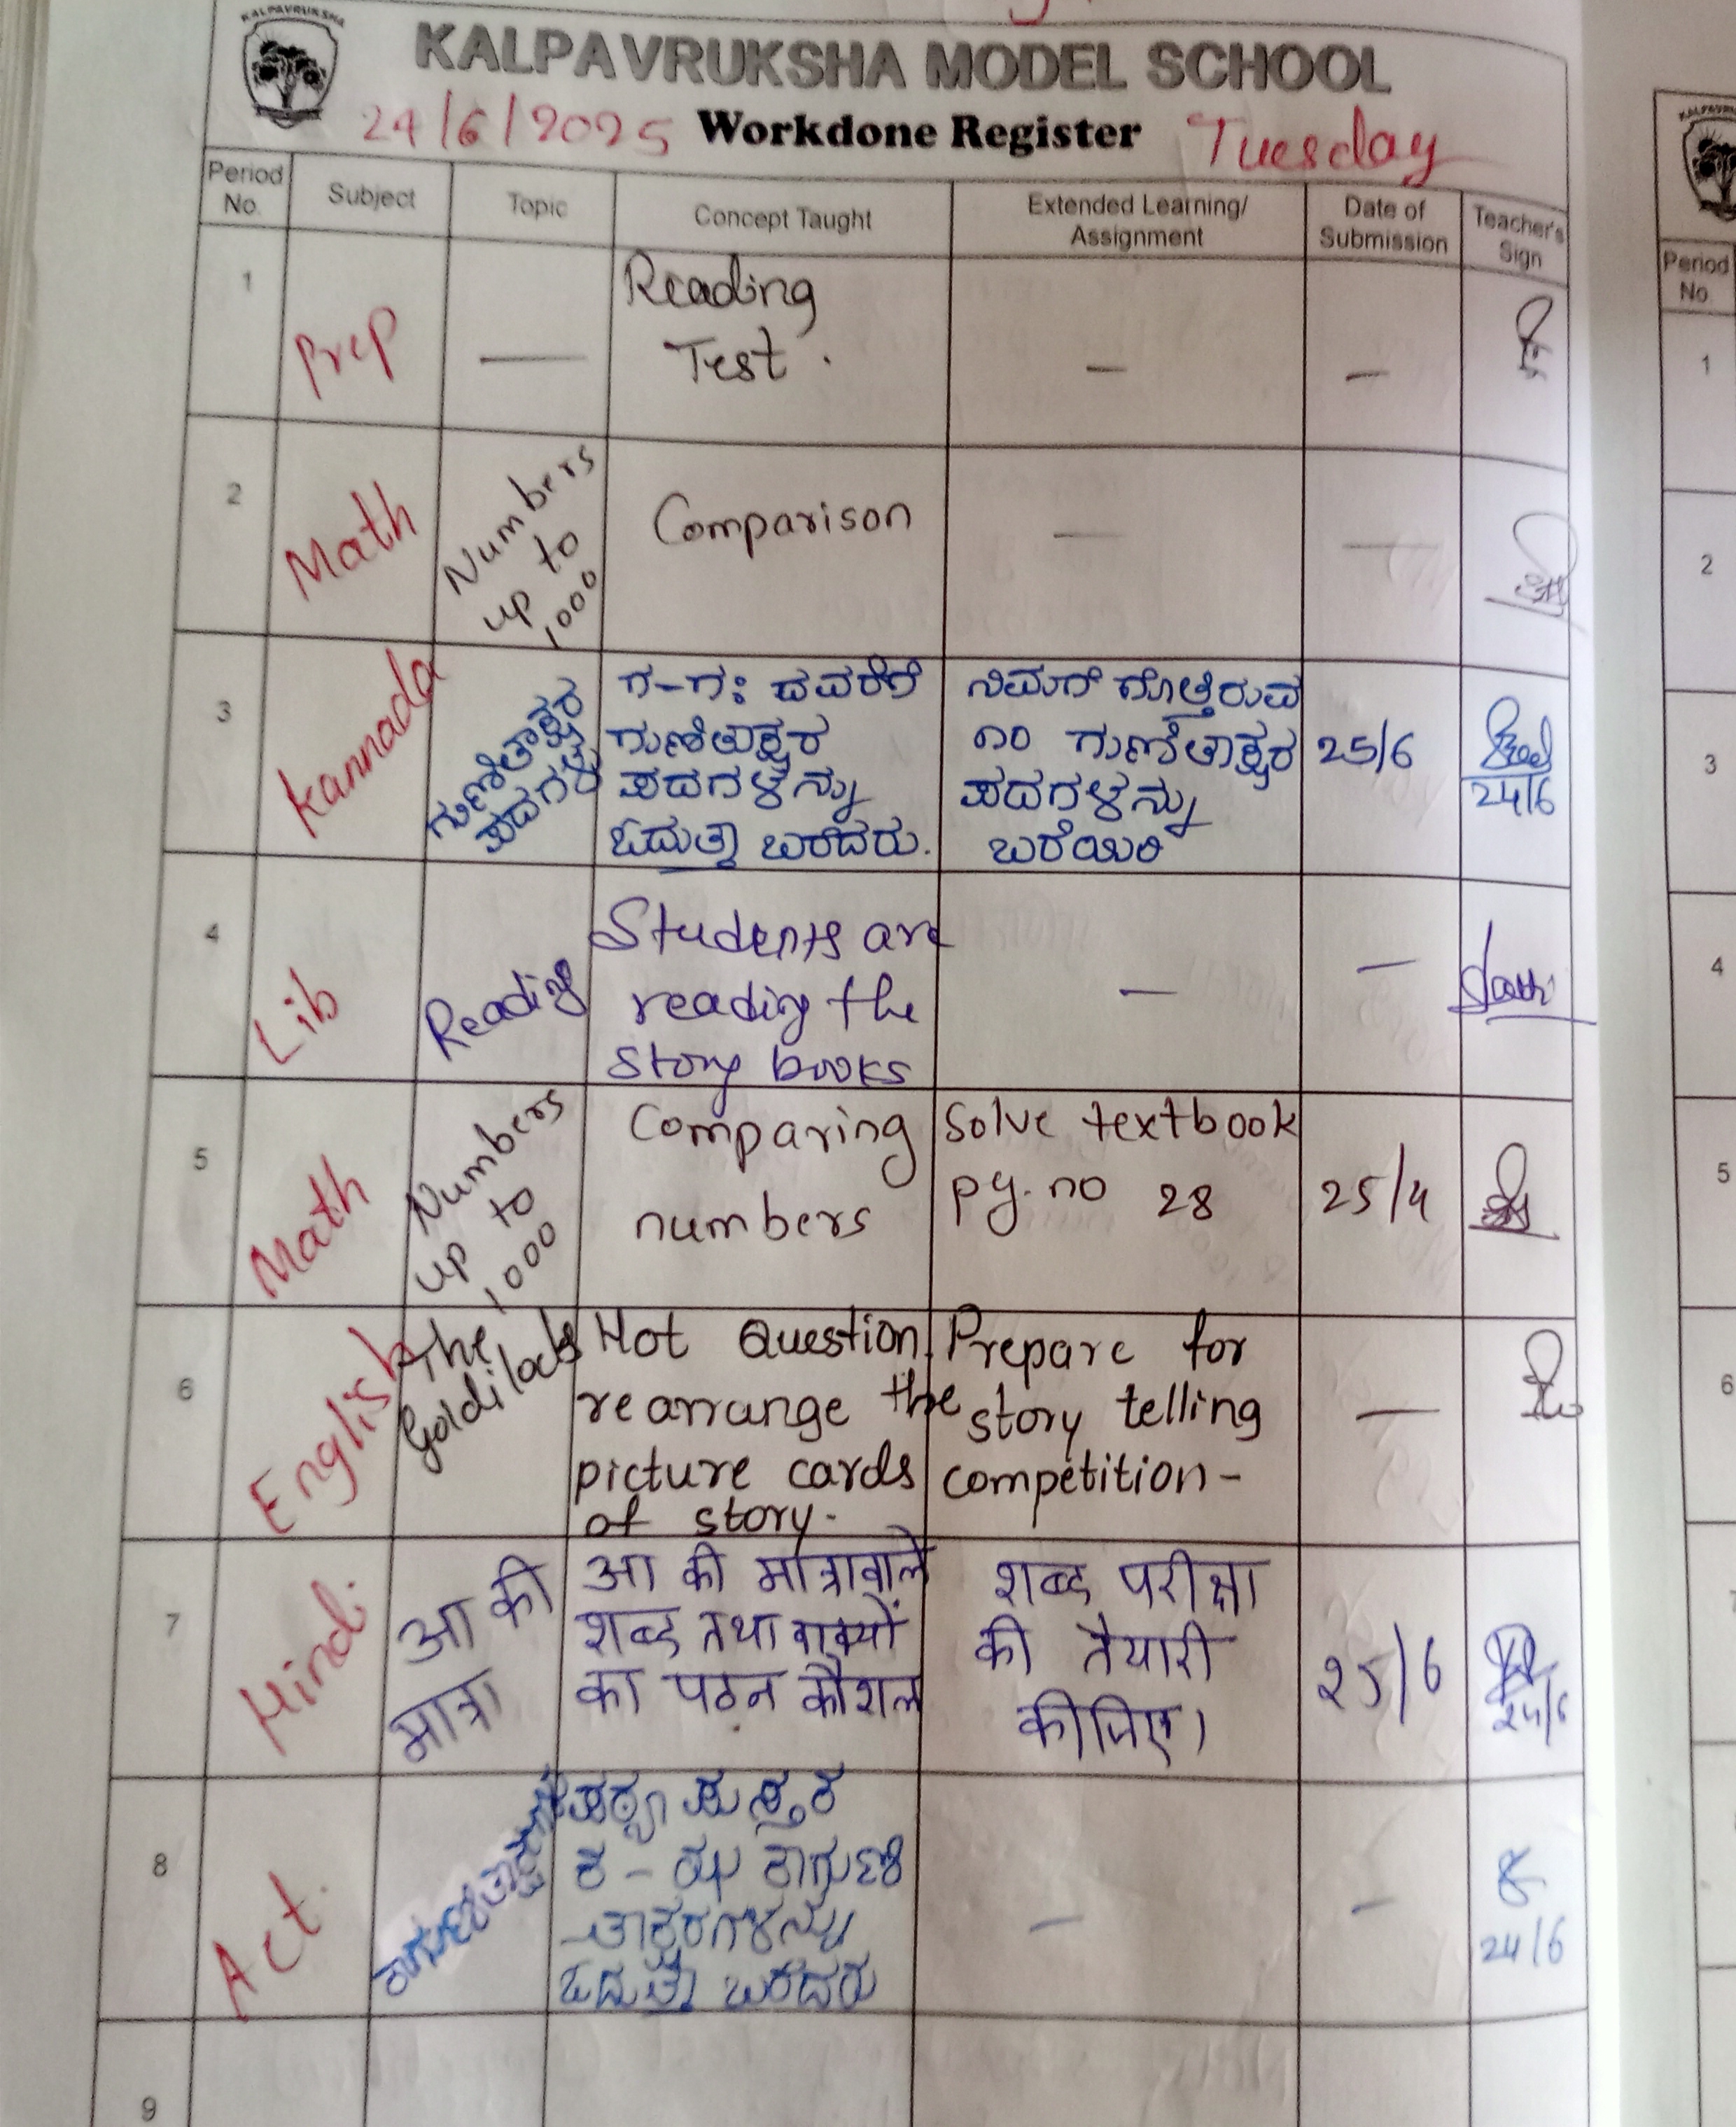 KALPAVRUKSHA
KALPAVRUKSHA MODEL SCHOOL
24/6/2025 Workdone Register Tuesday
Period No. Subject Topic Concept Taught Extended Learning/ Assignment Date of Submission Teacher's Sign
1 Prep — Reading
Test. — —
2 Math Numbers
up to
1000 Comparison — —
3 Kannada ಗುಣಿತಾಕ್ಷರ
ಪದಗಳು
ಗ-ಗಃ ದವರೆಗೆ
ಗುಣಿತಾಕ್ಷರ
ಪದಗಳನ್ನು
ಓದುತ್ತಾ ಬರೆದರು.
ನಿಮಗೆ ಗೊತ್ತಿರುವ
೧೦ ಗುಣಿತಾಕ್ಷರ
ಪದಗಳನ್ನು
ಬರೆಯಿರಿ
25/6
24/6
4 Lib Reading
Students are
reading the
story books
— —
5 Math Numbers
up to
1000
Comparing
numbers
Solve textbook
pg. no 28
25/4
6 English The
Goldilocks
Hot Question,
rearrange the
picture cards
of story.
Prepare for
story telling
competition-
—
7 Hindi आ की
मात्रा
आ की मात्रावाले
शब्द तथा वाक्यों
का पठन कौशल
शब्द परीक्षा
की तैयारी
कीजिए।
25/6
24/6
8 Act.
ಪಠ್ಯ ಪುಸ್ತಕ
ಓದುತ್ತಾ ಬರೆದರು
— —
24/6
9
Period
No.
1
2
3
4
5
6